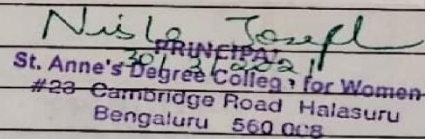 Nisha Joseph
PRINCIPAL
St. Anne's Degree College, for Women
#23 Cambridge Road Halasuru
Bengaluru 560 008